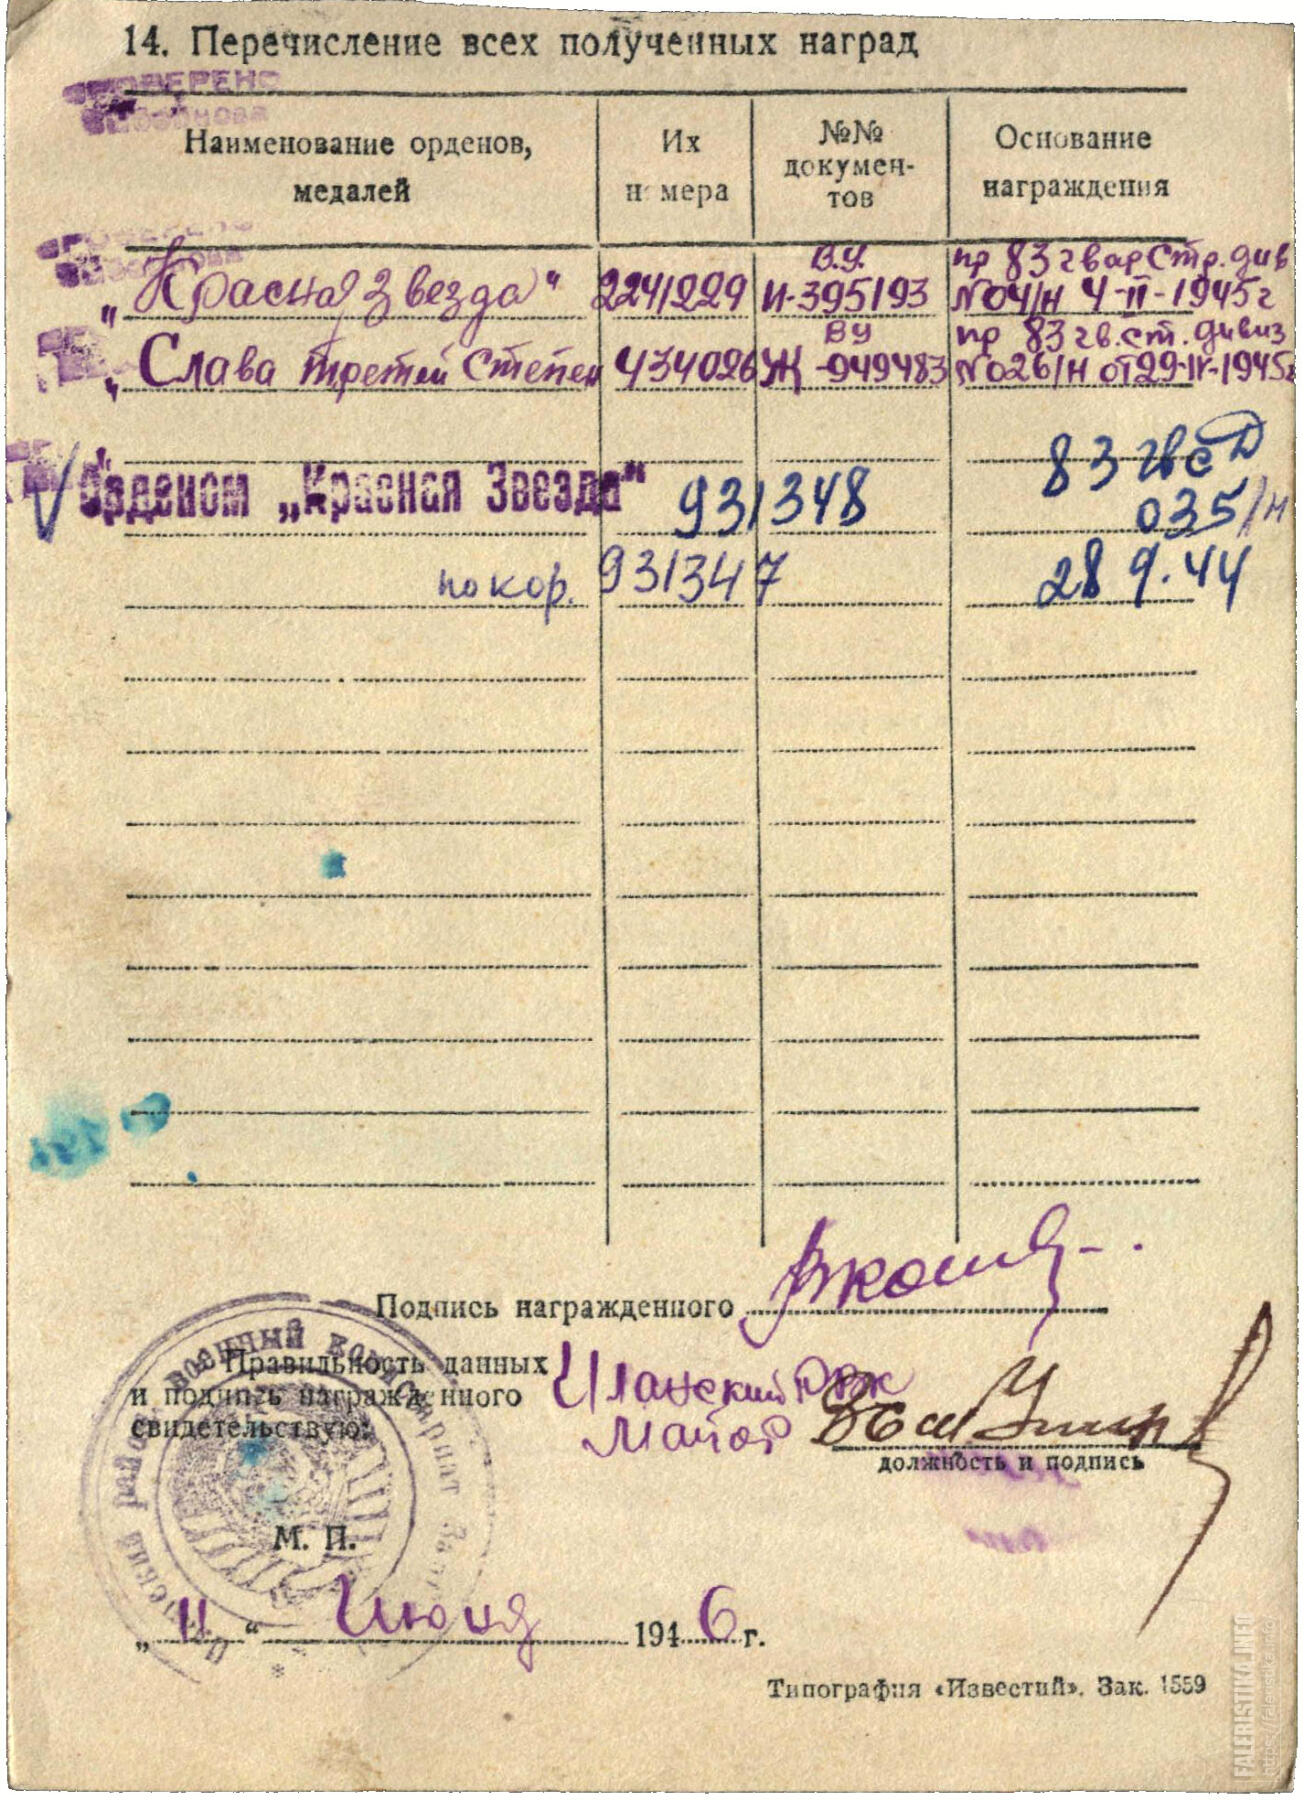 14. Перечисление всех полученных наград
ПРОВЕРЕНО
Наименование орденов, медалей
Их номера
№№ документов
Основание награждения
„Красная Звезда“ 2241229 В.У. И-395193 пр 83 гвар Стр. див №04/н 4-II-1945г
„Слава третей Степен 434026 ВУ Ж-949483 пр 83 гв. ст. дивиз №026/н от 29-IV-1945г
Орденом „Красная Звезда“ 931348 83 гвсд 035/н
по кор. 931347 28 9.44
Подпись награжденного
Правильность данных
и подпись награжденного
свидетельствую:
Иланский РВК
Майор
должность и подпись
военный комиссариат
М. П.
„11“ Июня 1946 г.
Типография «Известий». Зак. 1559
FALERISTIKA.INFO
https://faleristika.info